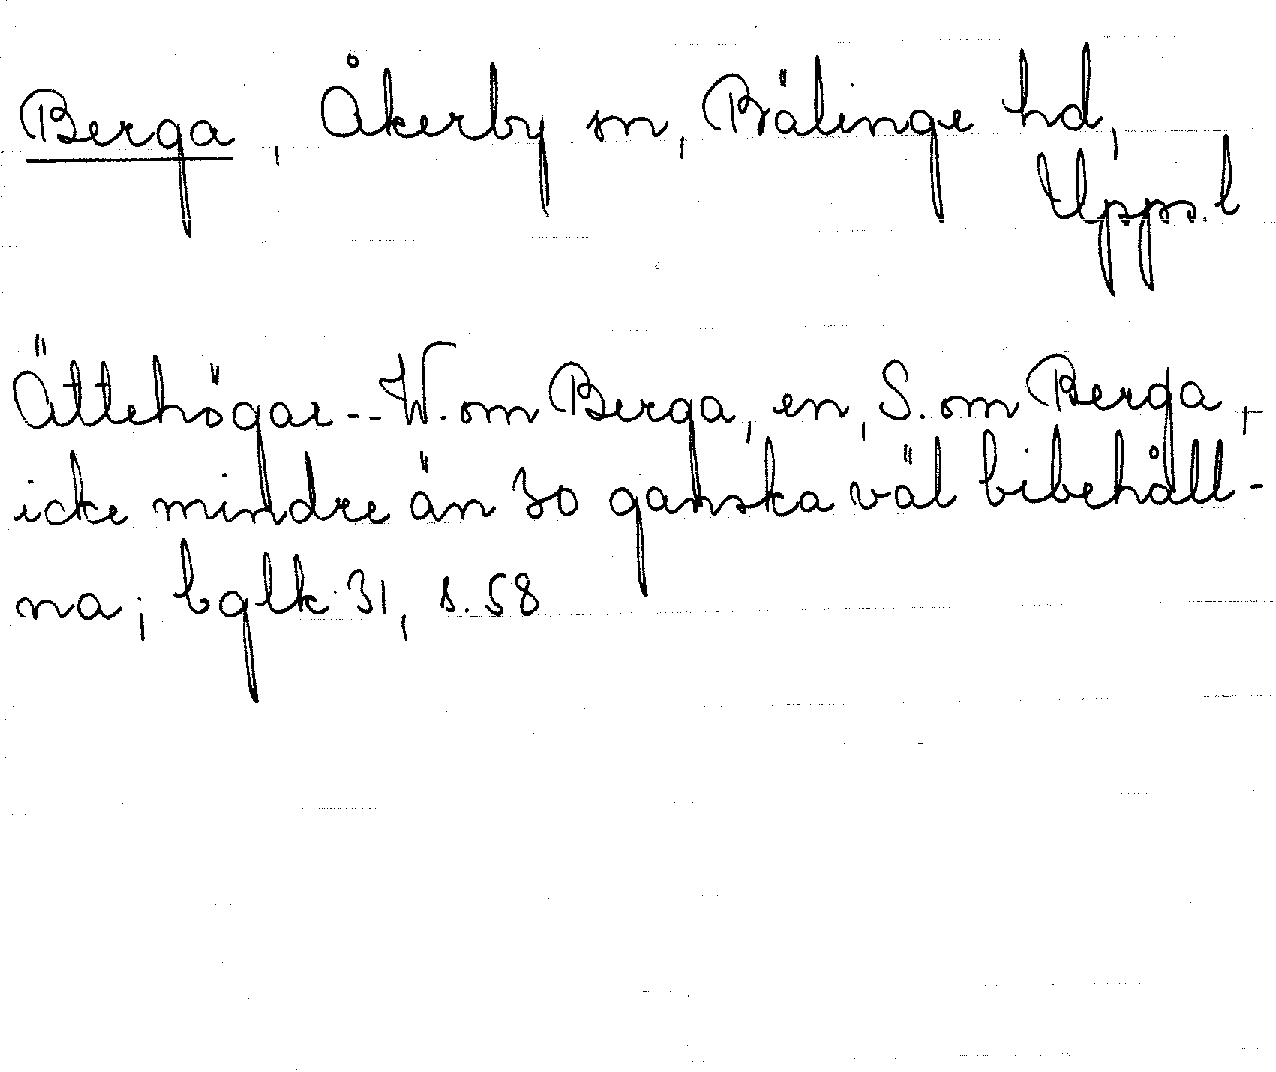 Berga, Åkerby sn, Bälinge hd,
Upps. l
Ättehögar -- W. om Berga, en, S. om Berga,
icke mindre än 30 ganska väl bibehåll-
na; bglk 31, s. 58